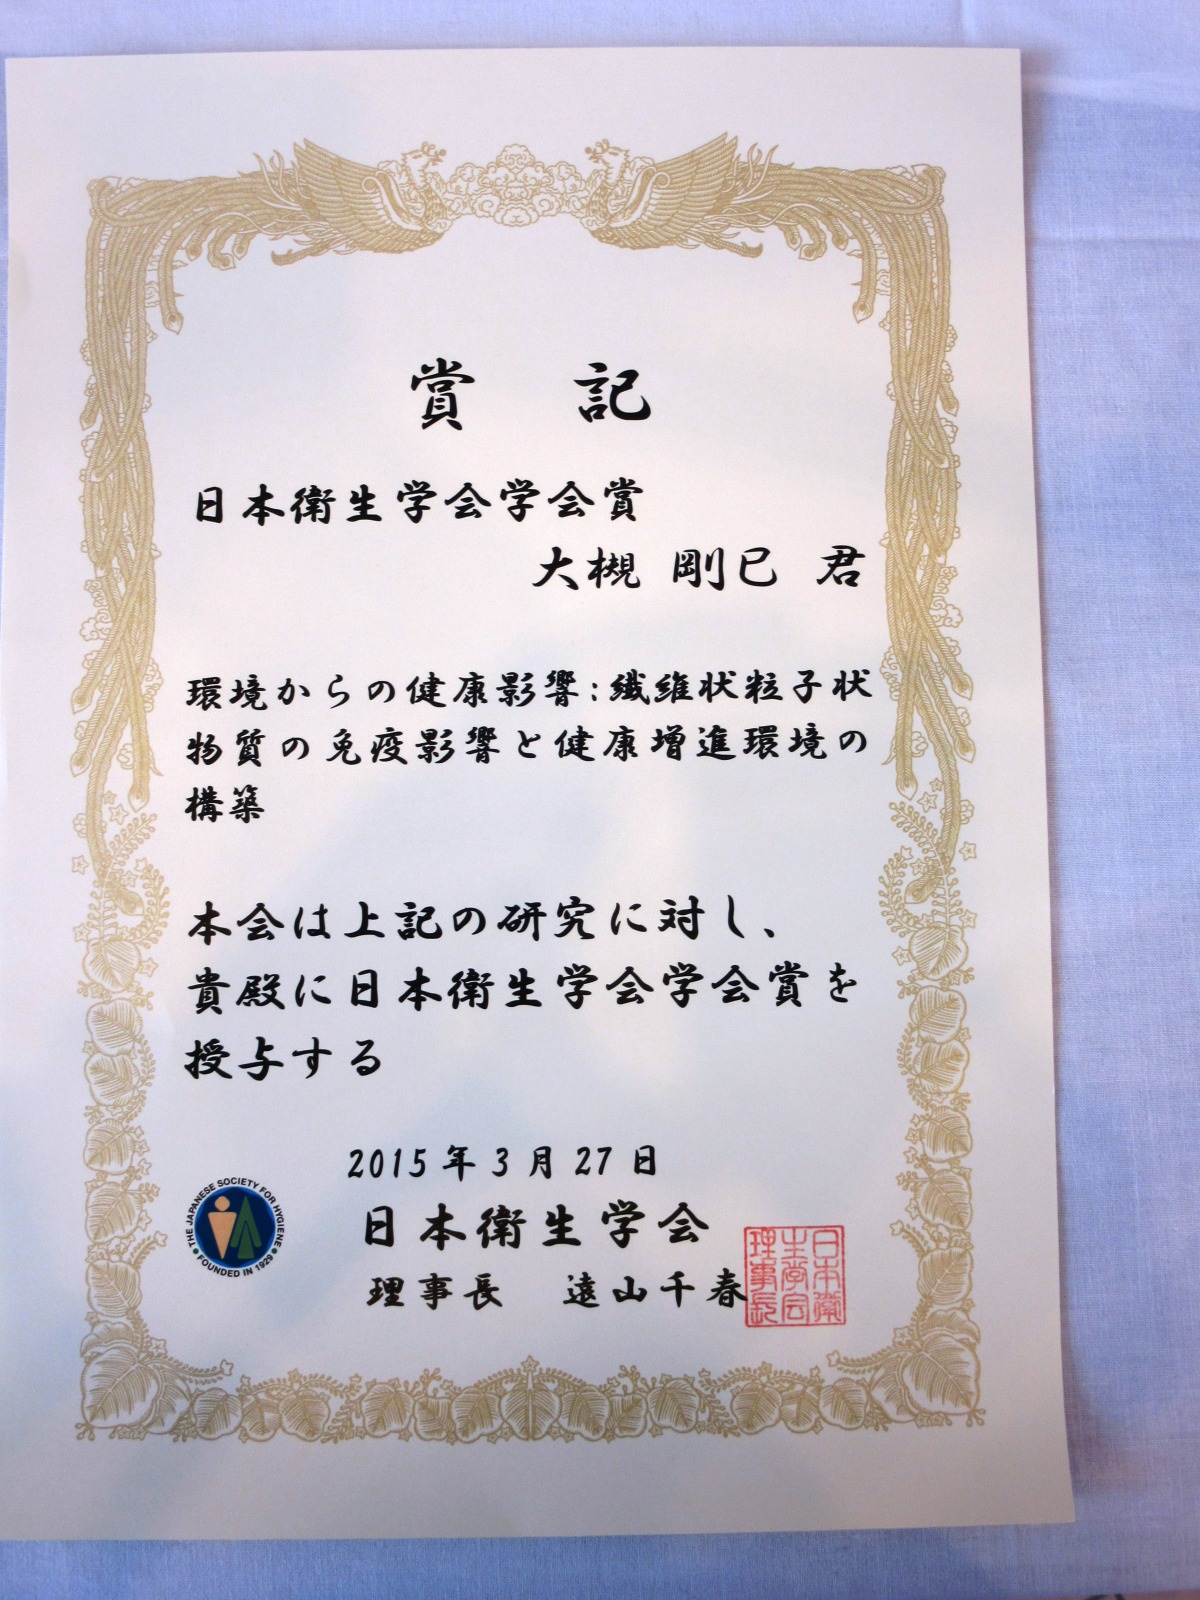 賞 記
日本衛生学会学会賞
大槻 剛巳 君
環境からの健康影響:繊維状粒子状
物質の免疫影響と健康増進環境の
構築
本会は上記の研究に対し、
貴殿に日本衛生学会学会賞を
授与する
2015年3月27日
日本衛生学会
理事長 遠山千春
THE JAPANESE SOCIETY FOR HYGIENE
FOUNDED IN 1929
日本衛
生学会
理事長